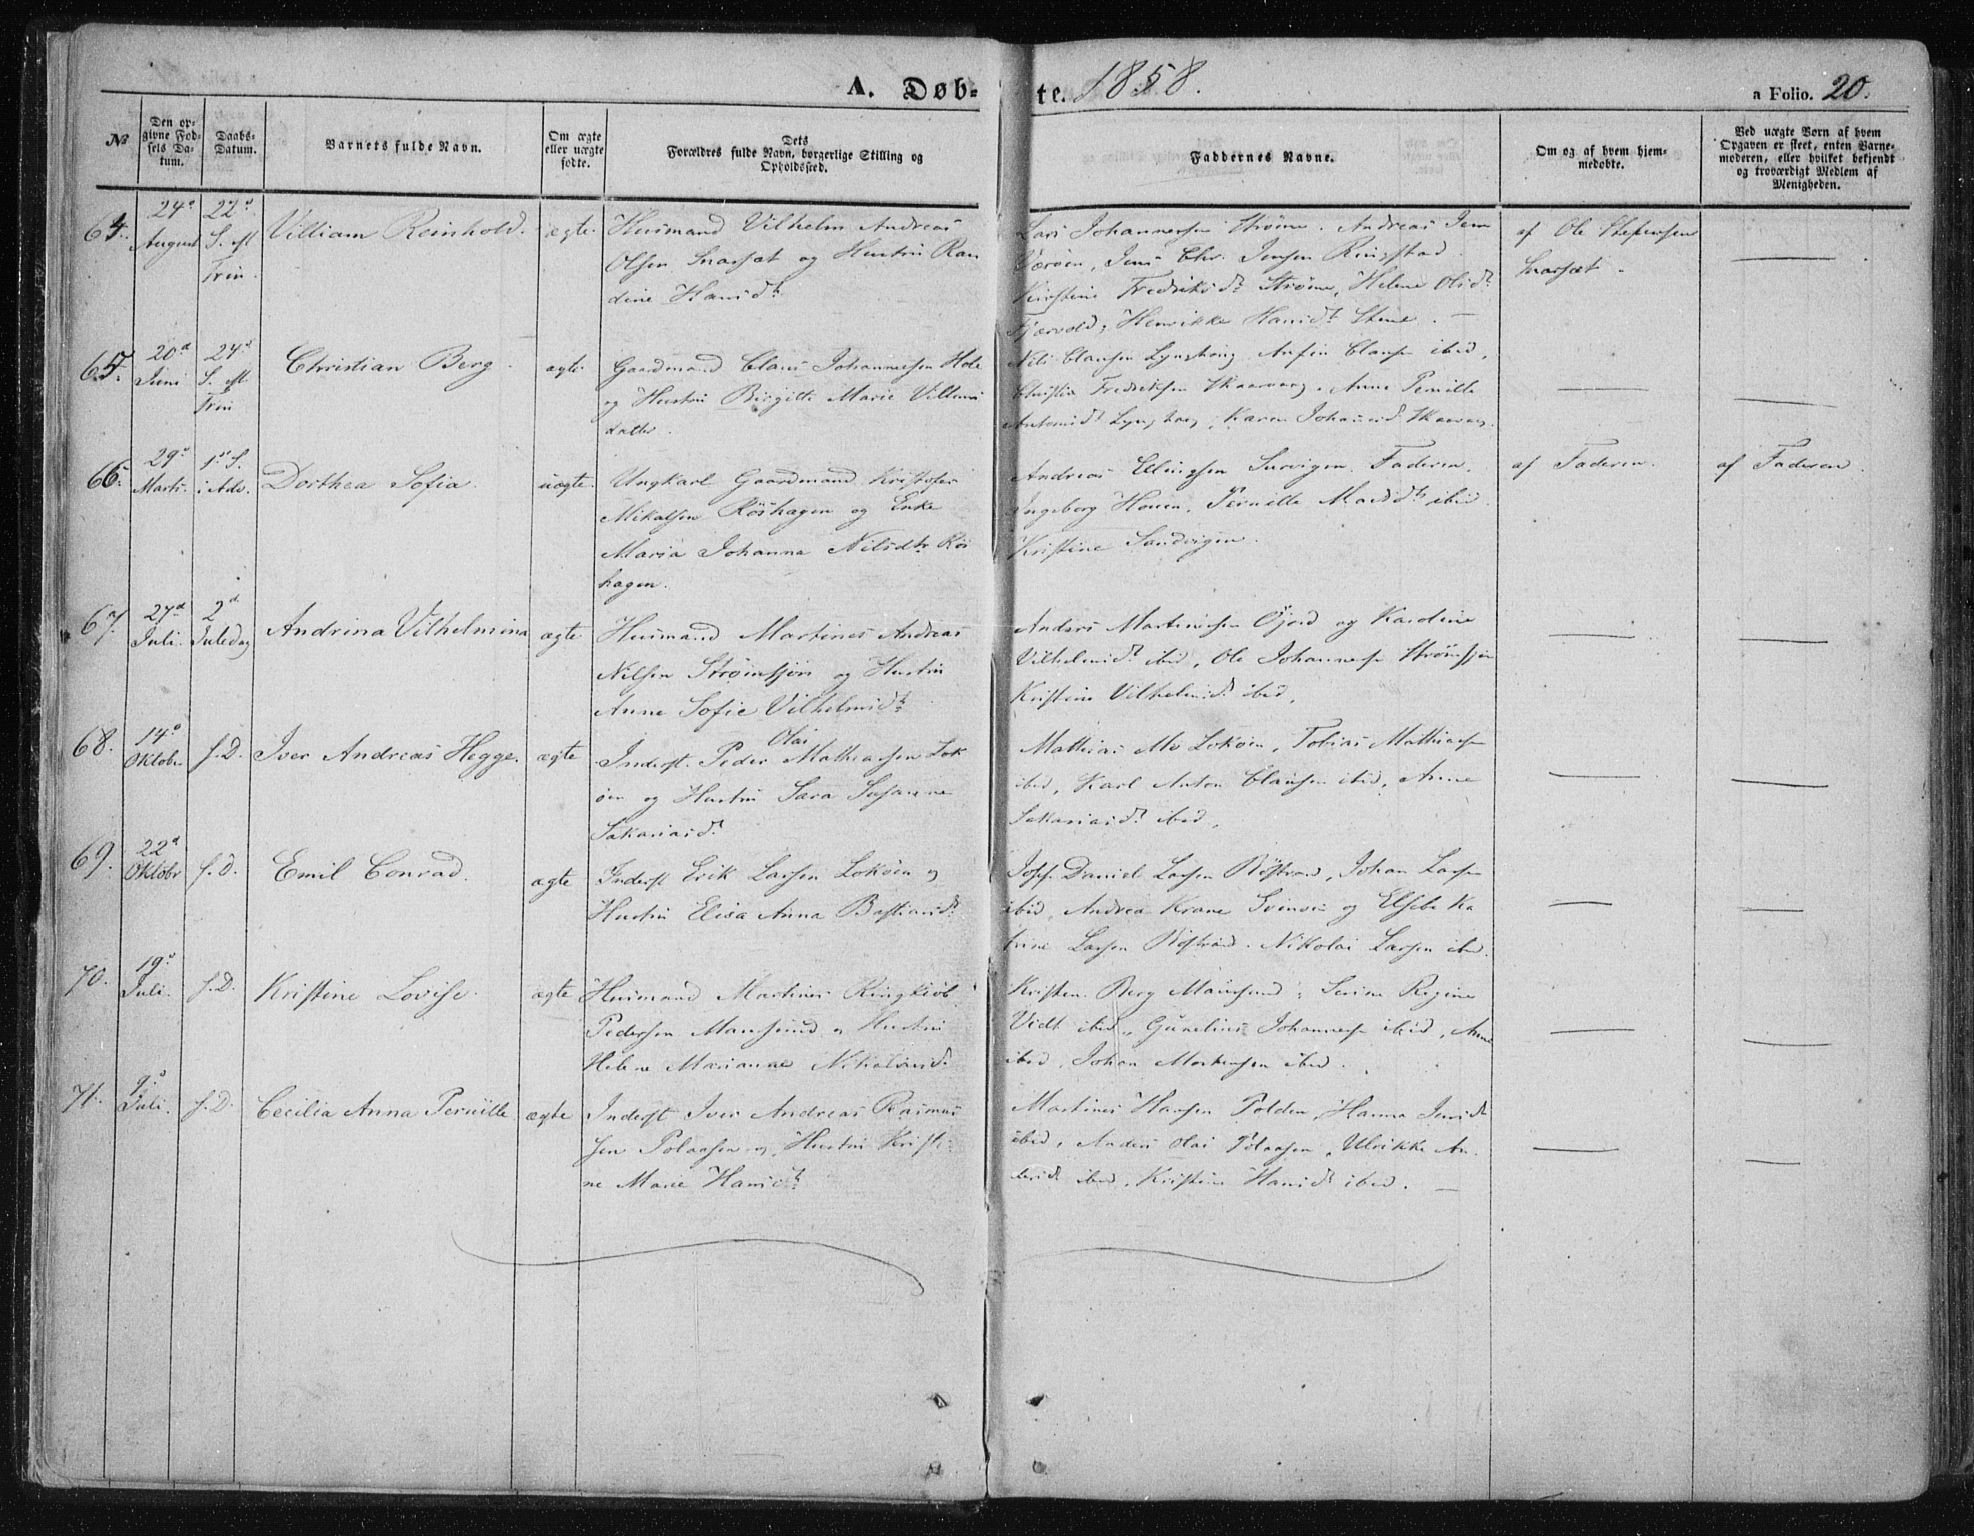 A. Døb-
te. 1858.
a Folio. 20.
No
Den op-
givne Fød-
sels Da-
tum.
Daabs-
Datum.
Barnets fulde Navn.
Om ægte
eller uægte
fødte.
Dets
Forældres fulde Navn, borgerlige Stilling og
Opholdssted.
Faddernes Navne.
Om og af hvem hjem-
medøbte.
Ved uægte Børn af hvem
Opgaven er skeet, enten Barne-
moderen, eller hvilket bekjendt
og troværdigt Medlem af
Menigheden.
64. 24de August 22de S. eft Trin. Villiam Reinhold. ægte.
Husmand Vilhelm Andreas
Olsen Snasæt og Hustru Ran
dine Hansdt
Lars Johannesen Strøm. Andreas Jen
Værøen, Jens Chr. Jensen Ringstad
Kirstine Fredriksdt Strøm, Helene Olsdt
Fjærvold, Henrikke Hansdt Stene. —
af Ole Stefensen
Snasæt.
65. 20de Juni 24de S. eft Trin Christian Berg. ægte.
Gaardmand Claus Johannesen Hole
og Hustru Birgitte Marie Villums
datter.
Nils Clausen Lynghoug, Anfin Claus. ibid,
Christen Fredriksen Skaarvaag, Anne Pernille
Antonidt Lynghoug, Karen Johansd. Skaarvag.
66. 29de Marts. 1ste S. i Adv. Dorthea Sofia. uægte.
Ungkarl Gaardmand Kristofer
Mikalsen Röshagen og Enke
Maria Johanna Nilsdtr Rös
hagen.
Andreas Ellingsen Survigen. Faderen.
Ingeborg Houen, Pernille Madsdt ibid.
Kristine Sandvigen.
af Faderen.
af Faderen.
67. 27de Juli. 2d Juledag Andrina Vilhelmina ægte
Husmand Martines Andreas
Nilsen Strømsjøn og Hustru
Anne Sofie Vilhelmsdt
Anders Martinussen Öjord og Karoline
Vilhelmsdt ibid, Ole Johannesen Strömsjön
Kristine Vilhelmsdt ibid.
68. 14de Oktober s.D. Iver Andreas Hegge. ægte
Olai
Inderst. Peder Mathiassen Lok
øen og Hustru Sara Susanne
Sakariasdt
Mathias Mo Lokøen, Tobias Mathiasen
ibid, Karl Anton Clausen ibid, Anne
Sakariasdt ibid.
69. 22de Oktobr s.D. Emil Conrad. ægte
Inderst Erik Larsen Lokøen og
Hustru Elisa Anna Bastiansdt
Joh. Daniel Larsen Röstrand, Johan Larsen
ibid, Andrea Krane Svinøen og Elsebe Ka
trine Larsen Röstrand. Nikolai Larsen ibid.
70. 19de Juli. s.D. Kristine Lovise. ægte
Husmand Martines Ringkiöb
Pedersen Mausund og Hustru
Helene Marianne Nikolaisdt
Kristen Berg Mausund, Serine Regine
Vidt ibid, Gunelius Johannesen ibid, Anne
ibid, Johan Mortensen ibid.
71. 9de Juli. s.D. Cecilia Anna Pernille ægte
Inderst Iver Andreas Rasmus
sen Polaasen og Hustru Kristi
ne Marie Hansdt
Martines Hansen Polden, Hanna Jensdt
ibid, Anders Olai Polaasen, Ulrikke An
dersdt ibid, Kristine Hansdt ibid. —